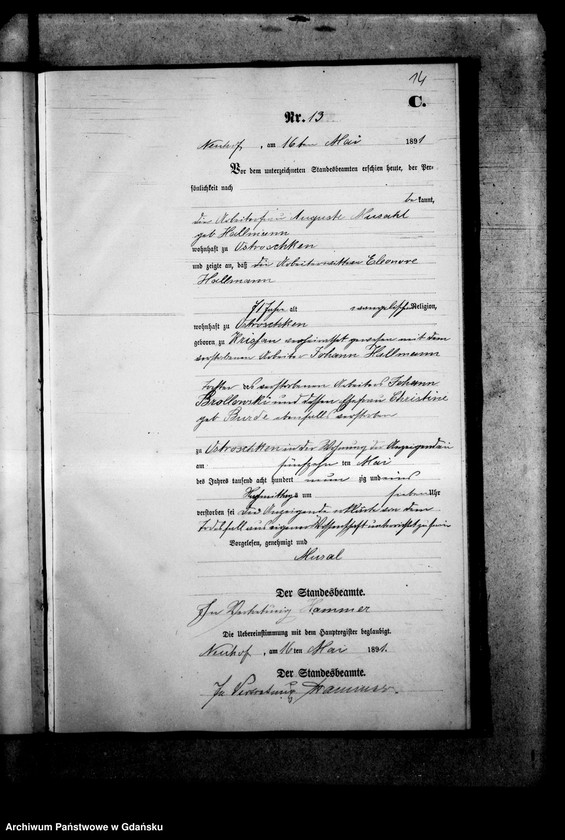 14
C.
Nr. 13
Neuhof, am 16ten Mai 1891
Vor dem unterzeichneten Standesbeamten erschien heute, der Per-
sönlichkeit nach
bekannt,
die Arbeiterfrau Auguste Musahl
geb Hallmann
wohnhaft zu Ostroschken
und zeigte an, daß die Arbeiterwittwe Eleonore
Hallmann
71 Jahr alt evangelischer Religion,
wohnhaft zu Ostroschken
geboren zu verheirathet gewesen mit dem
verstorbenen Arbeiter Johann Hallmann
Tochter des verstorbenen Arbeiters Johann
Brollowski und dessen Ehefrau Christine
geb Burde ebenfalls verstorben
zu Ostroschken in der Wohnung der Anzeigenden
am fünfzehn ten Mai
des Jahres tausend acht hundert neun zig und eins
Nachmittags um sieben Uhr
verstorben sei die Anzeigende erklärte von dem
Todesfall aus eigener Wissenschaft unterrichtet zu sein
Vorgelesen, genehmigt und
Musal
Der Standesbeamte.
In Vertretung Hammer
Die Uebereinstimmung mit dem Hauptregister beglaubigt.
Neuhof, am 16ten Mai 1891.
Der Standesbeamte.
In Vertretung Hammer.
Archiwum Państwowe w Gdańsku